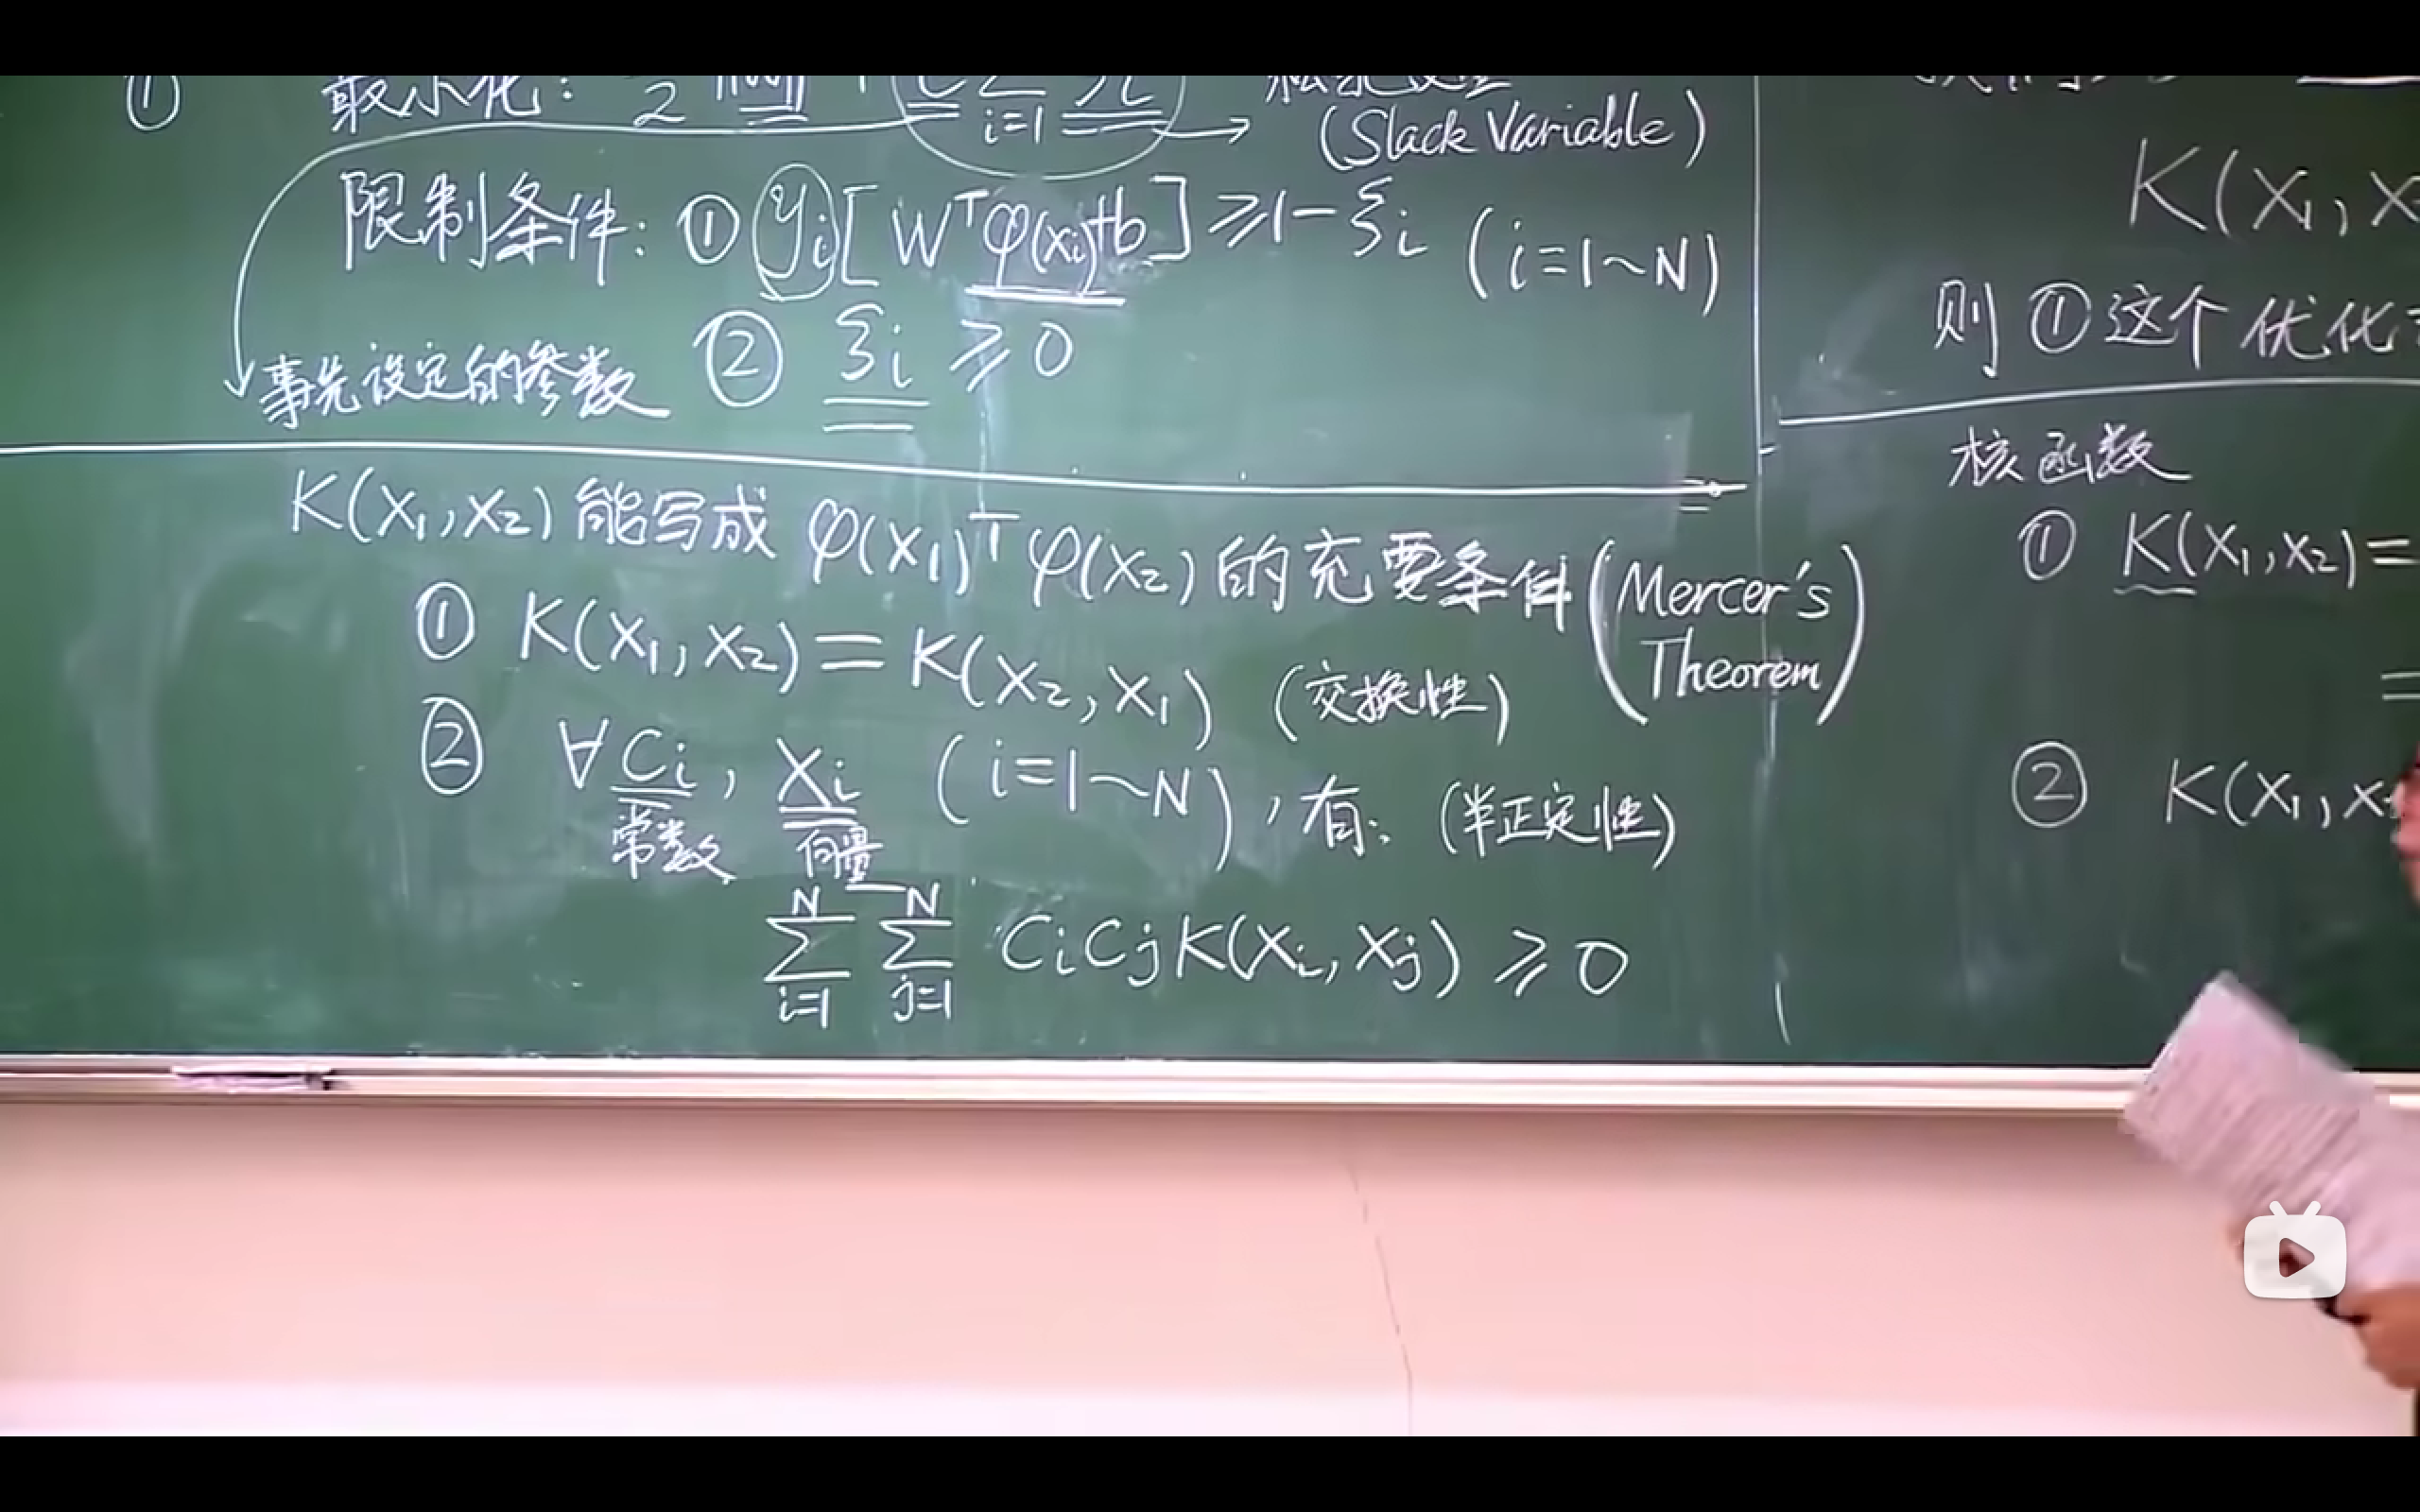 ① 最小化: 1/2 ||W||² + C ∑_{i=1} ξi
(Slack Variable)
限制条件: ① yi[W^Tφ(xi)+b] ≥ 1-ξi (i=1~N)
事先设定的参数 ② ξi ≥ 0
K(X1,X2) 能写成 φ(X1)^T φ(X2) 的充要条件 (Mercer's Theorem)
① K(X1,X2) = K(X2,X1) (交换性)
② ∀Ci, Xi (i=1~N), 有: (半正定性)
常数 向量
∑_{i=1}^{N} ∑_{j=1}^{N} CiCjK(Xi,Xj) ≥ 0
K(X1,X
则 ① 这个优化
核函数
① K(X1,X2) =
=
② K(X1,X